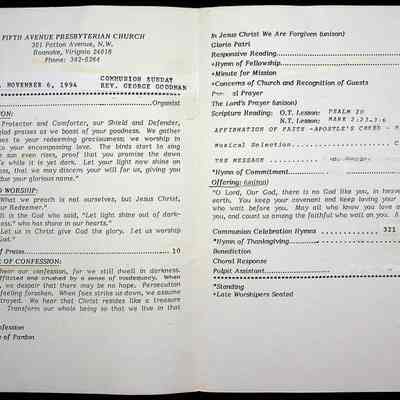 FIFTH AVENUE PRESBYTERIAN CHURCH
301 Patton Avenue, N.W.
Roanoke, Virginia 24016
Phone: 342-0264
NOVEMBER 6, 1994
COMMUNION SUNDAY
REV. GEORGE GOODMAN
Organist
ION:
Protector and Comforter, our Shield and Defender,
glad praises as we boast of your goodness. We gather
ves to your redeeming graciousness; we worship in
to your encompassing love. The birds start to sing
e sun even rises, proof that you promise the dawn
le while it is yet dark. Let your light now shine on
ss, that we may discern your will for us, giving you
due your glorious name."
O WORSHIP:
What we preach is not ourselves, but Jesus Christ,
our Redeemer."
It is the God who said, "Let light shine out of dark-
ess," who has shone in our hearts."
Let us in Christ give God the glory. Let us worship
God."
of Praise 10
E OF CONFESSION:
hear our confession, for we still dwell in darkness.
afflicted and crushed by a sense of inadequacy. When
, we despair that there may be no hope. Persecution
feeling forsaken. When foes strike us down, we assume
troyed. We hear that Christ resides like a treasure
Transform our whole being so that we live in that
nfession
e of Pardon
In Jesus Christ We Are Forgiven (unison)
Gloria Patri
Responsive Reading
*Hymn of Fellowship
+Minute for Mission
+Concerns of Church and Recognition of Guests
Prayer
The Lord's Prayer (unison)
Scripture Reading: O.T. Lesson: PSALM 20
N.T. Lesson: MARK 2:23-3:6
AFFIRMATION OF FAITH -APOSTLE'S CREED -
Musical Selection C
THE MESSAGE
*Hymn of Commitment
Offering: (unison)
"O Lord, Our God, there is no God like you, in heave
earth. You keep your covenant and keep loving your
who wait before you. May all who know you love a
you, and count us among the faithful who wait on you. A
Communion Celebration Hymns 321
*Hymn of Thanksgiving
Benediction
Choral Response
Pulpit Assistant
*Standing
+Late Worshipers Seated